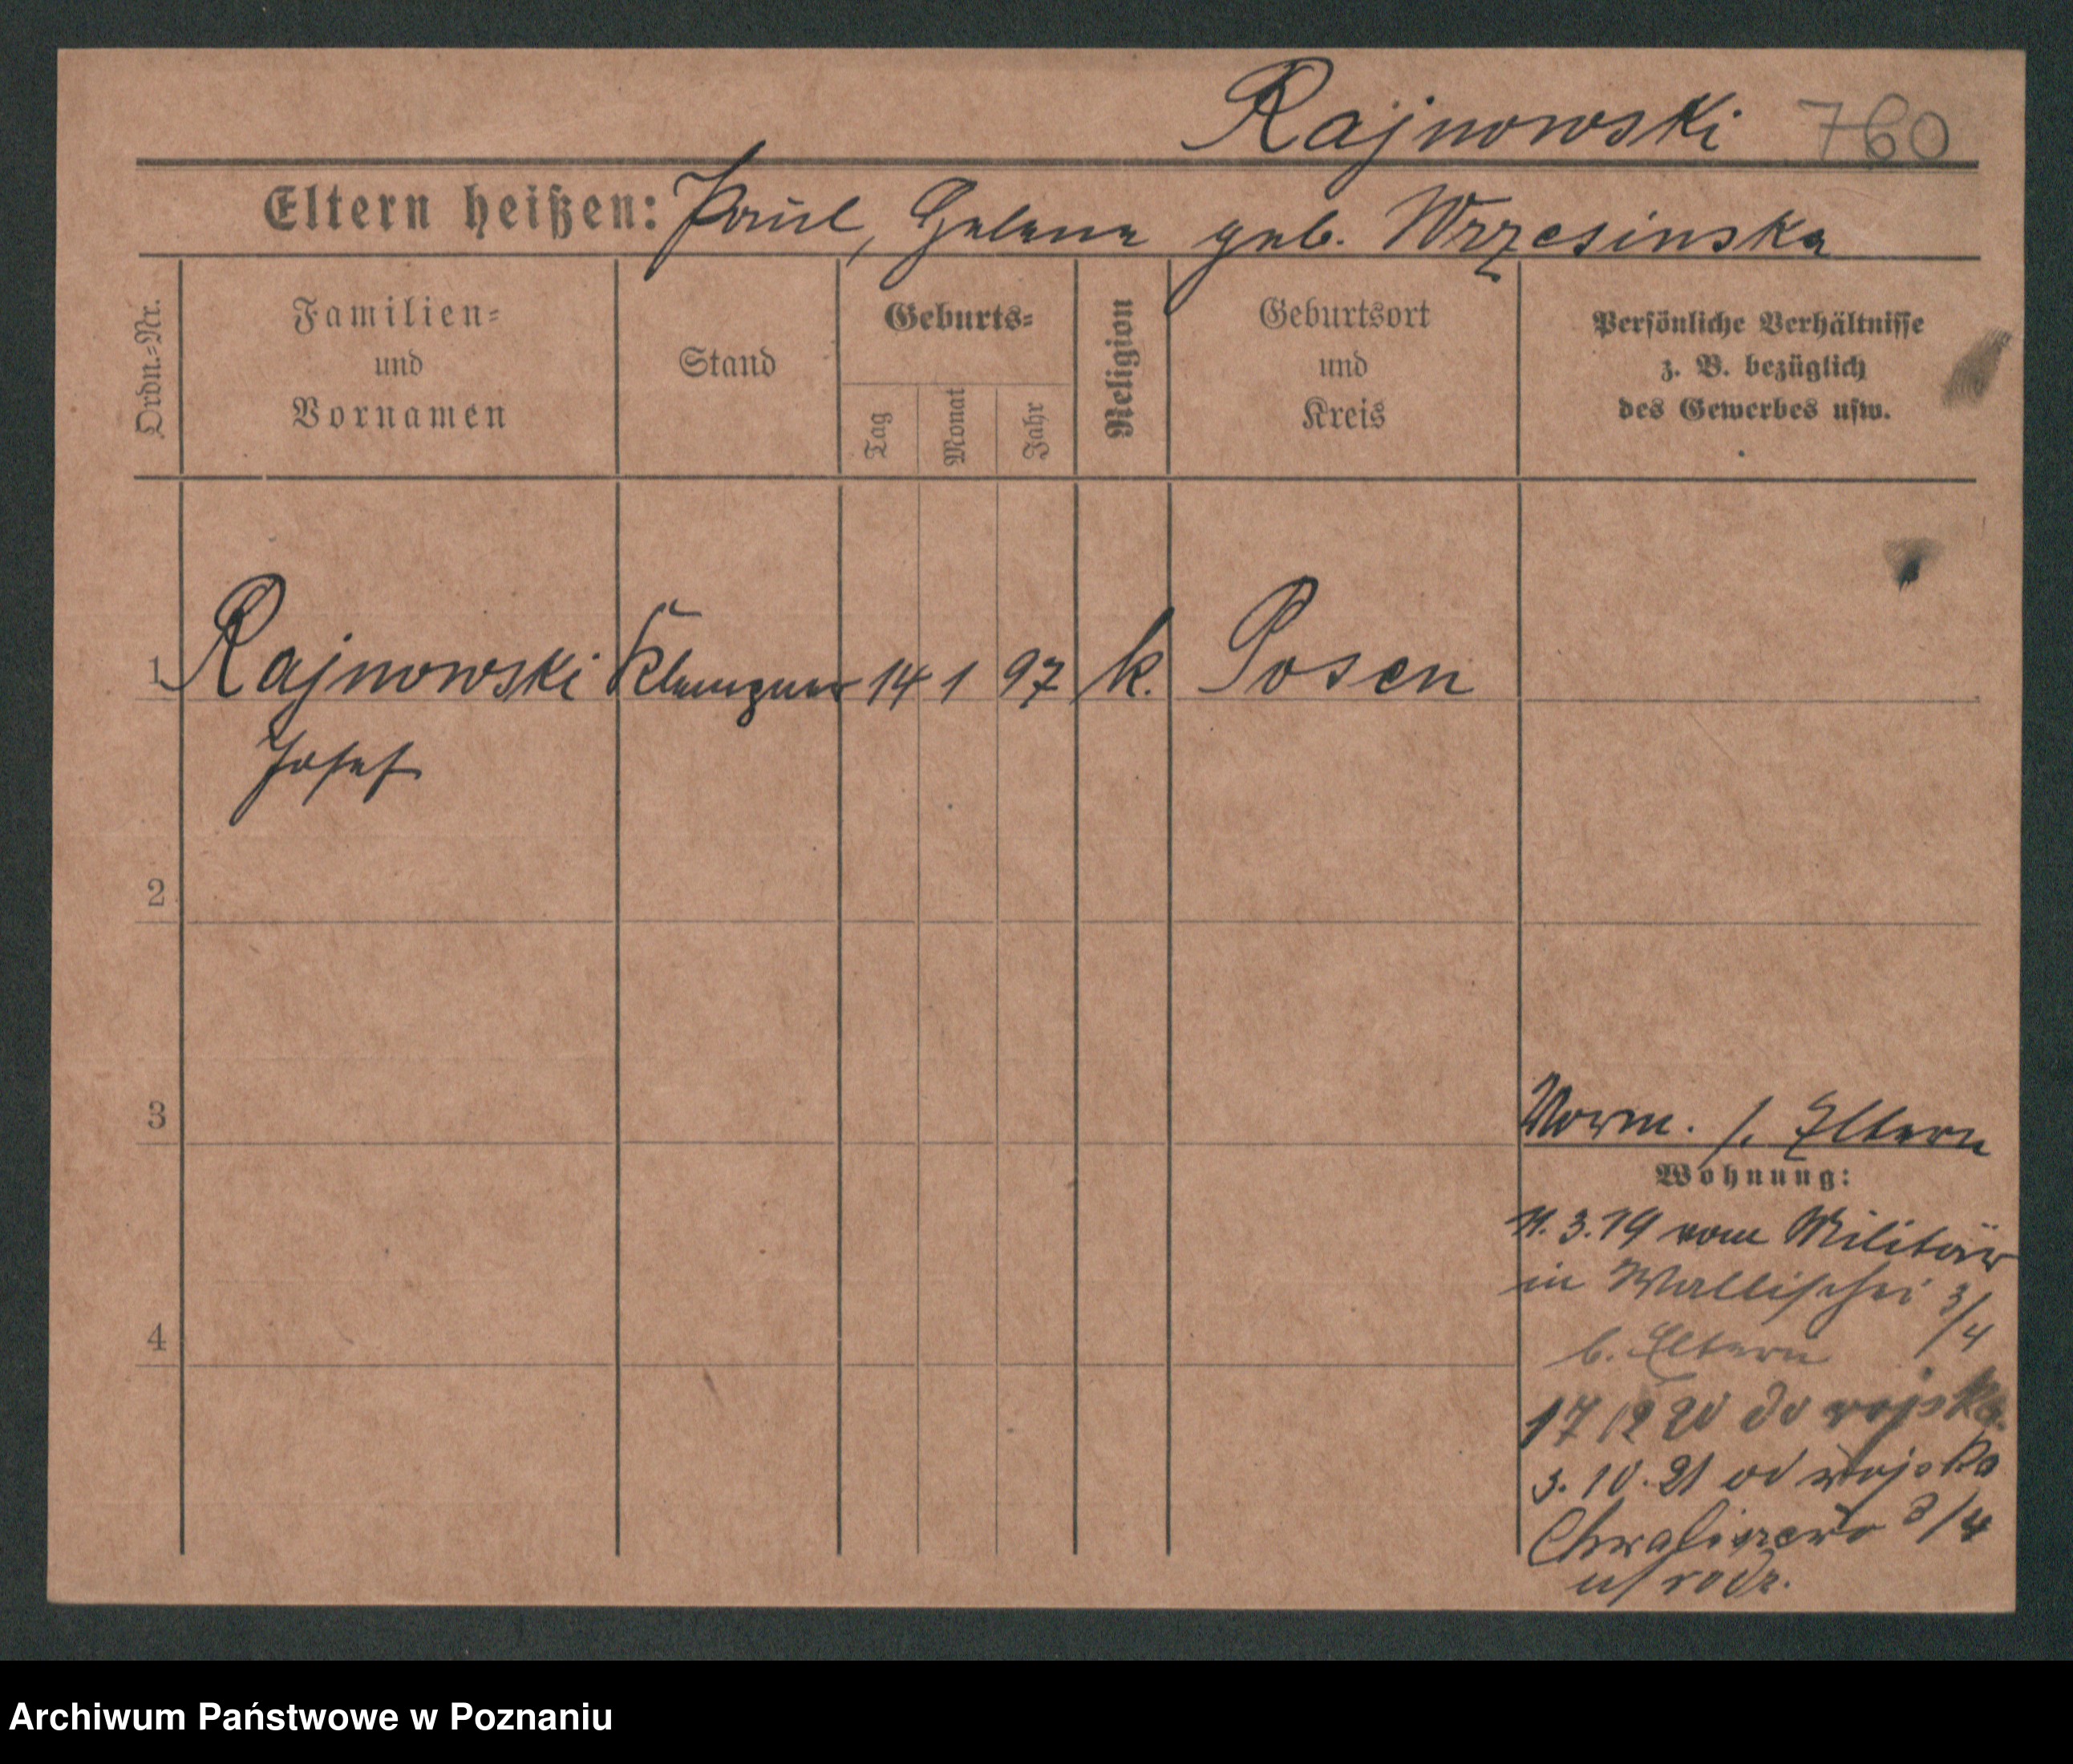 Rajnowski 760
Eltern heißen: Paul, Helene geb. Wrzesinska
Ordn.-Nr.
Familien-
und
Vornamen
Stand
Geburts-
Tag
Monat
Jahr
Religion
Geburtsort
und
Kreis
Persönliche Verhältnisse
z. B. bezüglich
des Gewerbes usw.
1 Rajnowski Klempner 14 1 97 k. Posen
Josef
2
3
Vorm. s. Eltern
Wohnung:
11.3.19 vom Militär
in Wallischei 3/4
b. Eltern
4
17 12 20 do wojska.
3.10.21 od wojska
Chwaliszewo 3/4
u/ rodz.
Archiwum Państwowe w Poznaniu